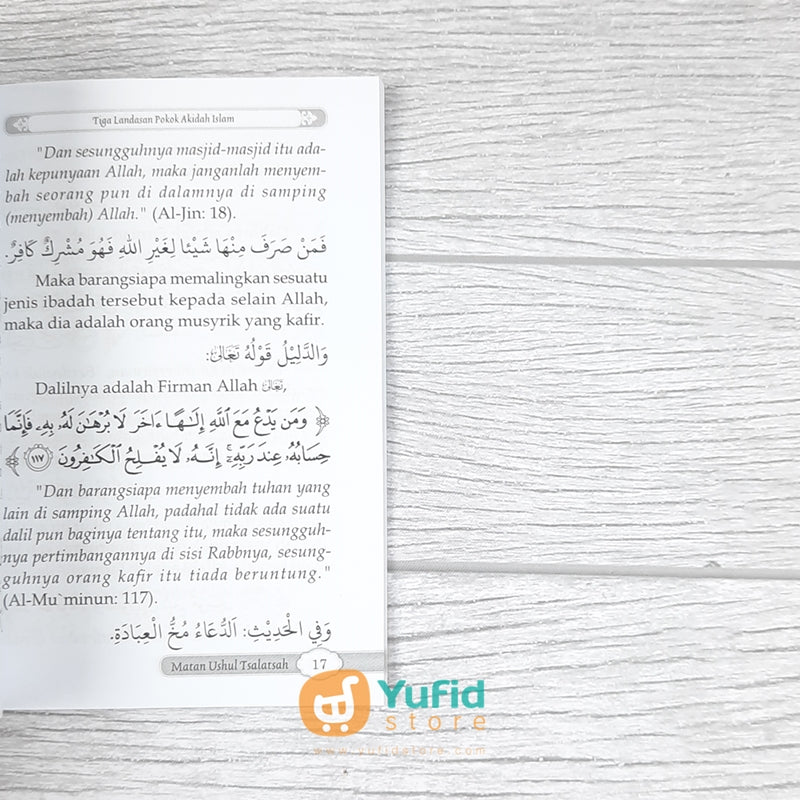 Tiga Landasan Pokok Akidah Islam
"Dan sesungguhnya masjid-masjid itu ada-
lah kepunyaan Allah, maka janganlah menyem-
bah seorang pun di dalamnya di samping
(menyembah) Allah." (Al-Jin: 18).
فَمَنْ صَرَفَ مِنْهَا شَيْئًا لِغَيْرِ اللهِ فَهُوَ مُشْرِكٌ كَافِرٌ.
Maka barangsiapa memalingkan sesuatu
jenis ibadah tersebut kepada selain Allah,
maka dia adalah orang musyrik yang kafir.
وَالدَّلِيْلُ قَوْلُهُ تَعَالَىٰ:
Dalilnya adalah Firman Allah تَعَالَىٰ,
﴿ وَمَن يَدْعُ مَعَ ٱللَّهِ إِلَـٰهًا ءَاخَرَ لَا بُرْهَـٰنَ لَهُۥ بِهِۦ فَإِنَّمَا
حِسَابُهُۥ عِندَ رَبِّهِۦٓ ۚ إِنَّهُۥ لَا يُفْلِحُ ٱلْكَـٰفِرُونَ ١١٧ ﴾
"Dan barangsiapa menyembah tuhan yang
lain di samping Allah, padahal tidak ada suatu
dalil pun baginya tentang itu, maka sesungguh-
nya pertimbangannya di sisi Rabbnya, sesung-
guhnya orang kafir itu tiada beruntung."
(Al-Mu`minun: 117).
وَفِي الْحَدِيْثِ: اَلدُّعَاءُ مُخُّ الْعِبَادَةِ.
Matan Ushul Tsalatsah 17
Yufid
store
www.yufidstore.com